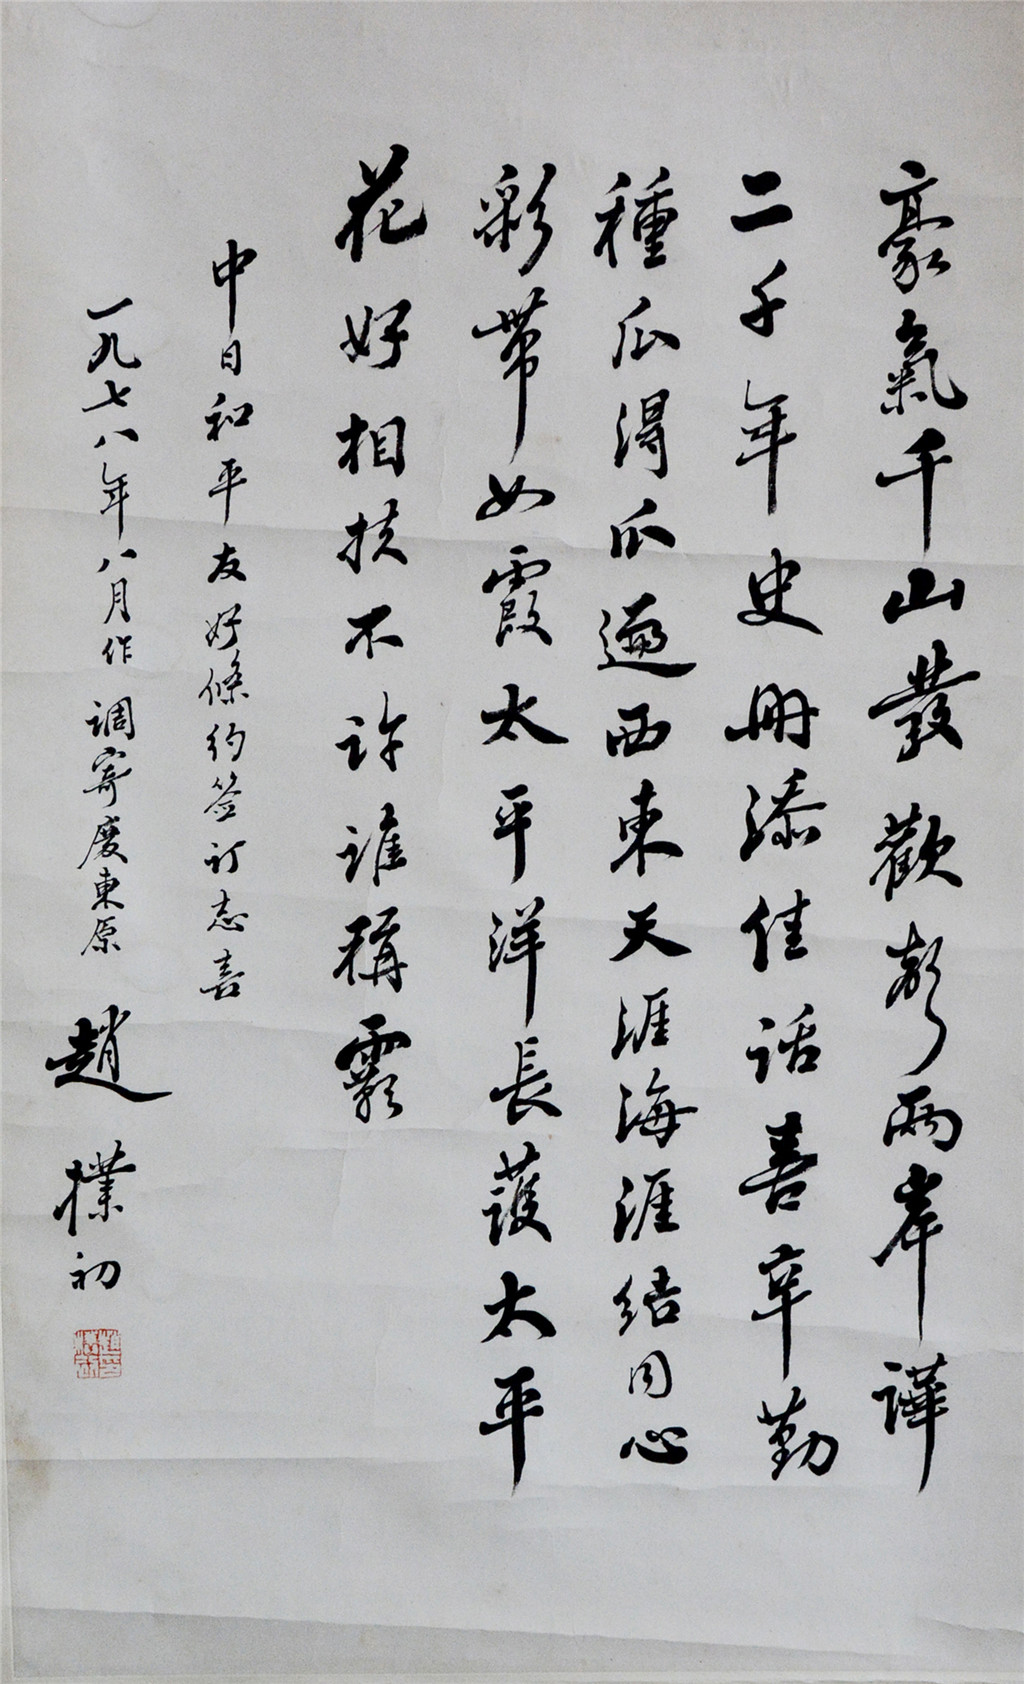 豪氣千山發歡聲兩岸譁
二千年史册添佳話喜辛勤
種瓜得瓜遍西東天涯海涯結同心
彩帶如霞太平洋長護太平
花好相扶不許誰稱霸
中日和平友好條約签订志喜
一九七八年八月作 调寄度東原 趙樸初